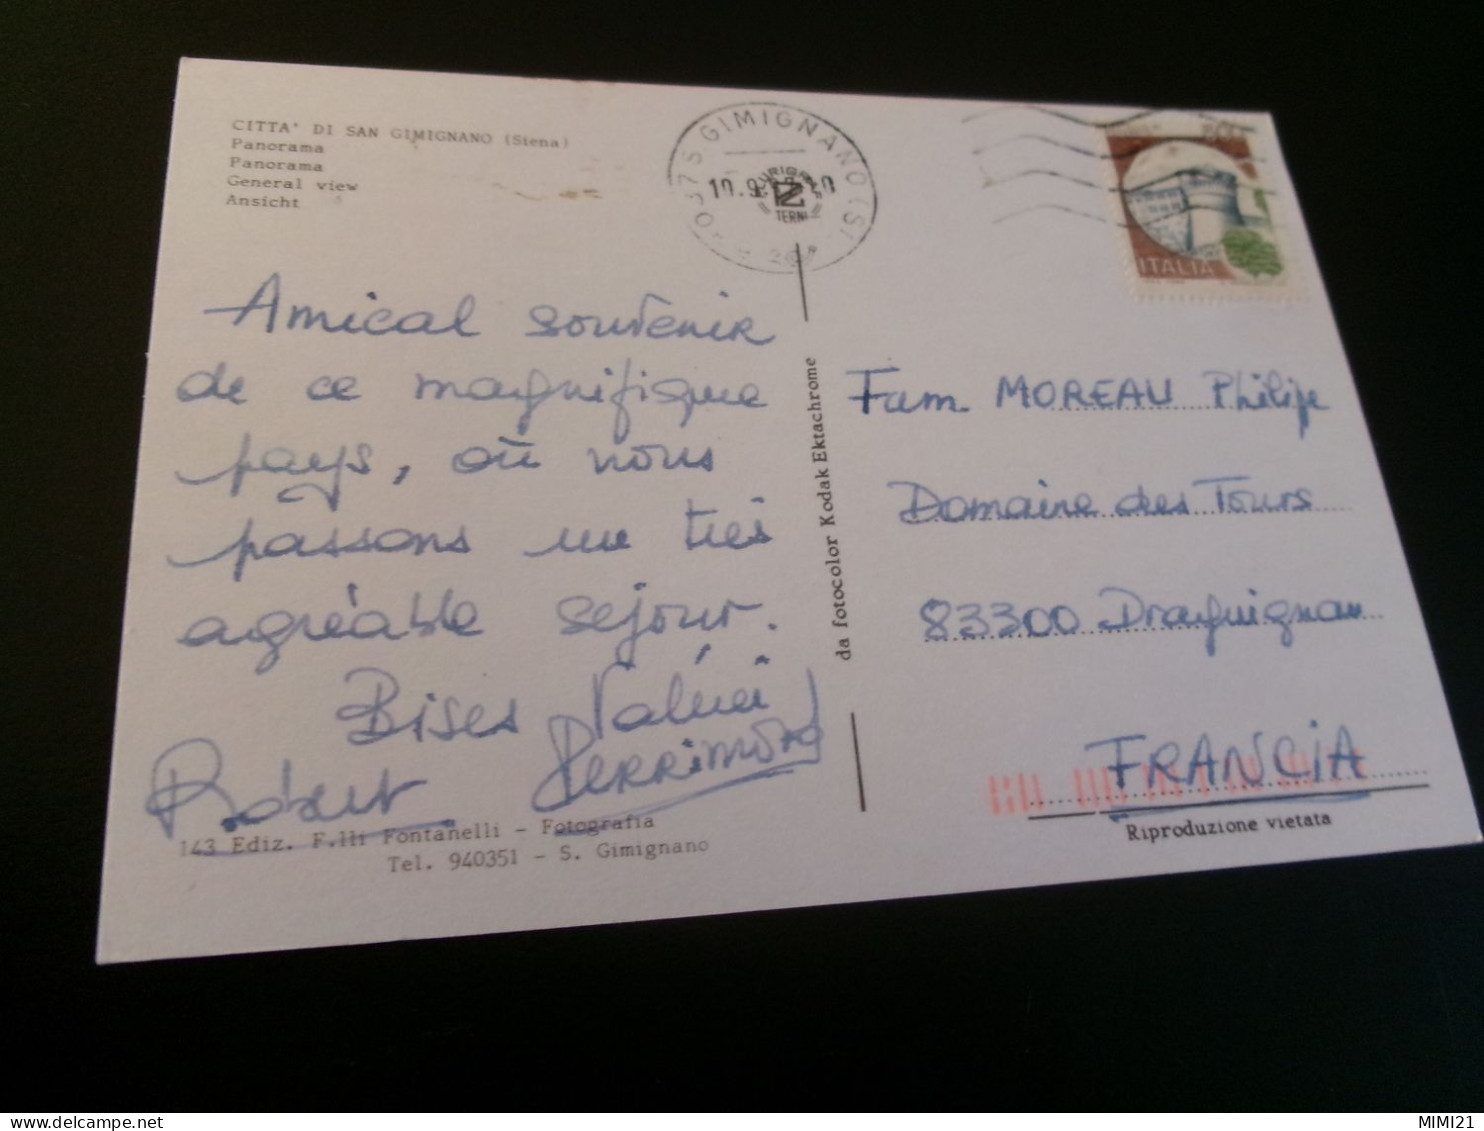 CITTA' DI SAN GIMIGNANO (Siena)
Panorama
Panorama
General view
Ansicht
GIMIGNANO (SI)
TERNI
ITALIA
Amical souvenir
de ce magnifique
pays, où nous
passons un très
agréable séjour.
Bises
Robert
143 Ediz. F.lli Fontanelli - Fotografia
Tel. 940351 - S. Gimignano
da fotocolor Kodak Ektachrome
Fam. MOREAU Philipe
Domaine des Tours
83300 Draguignan
FRANCIA
Riproduzione vietata
MIMI21